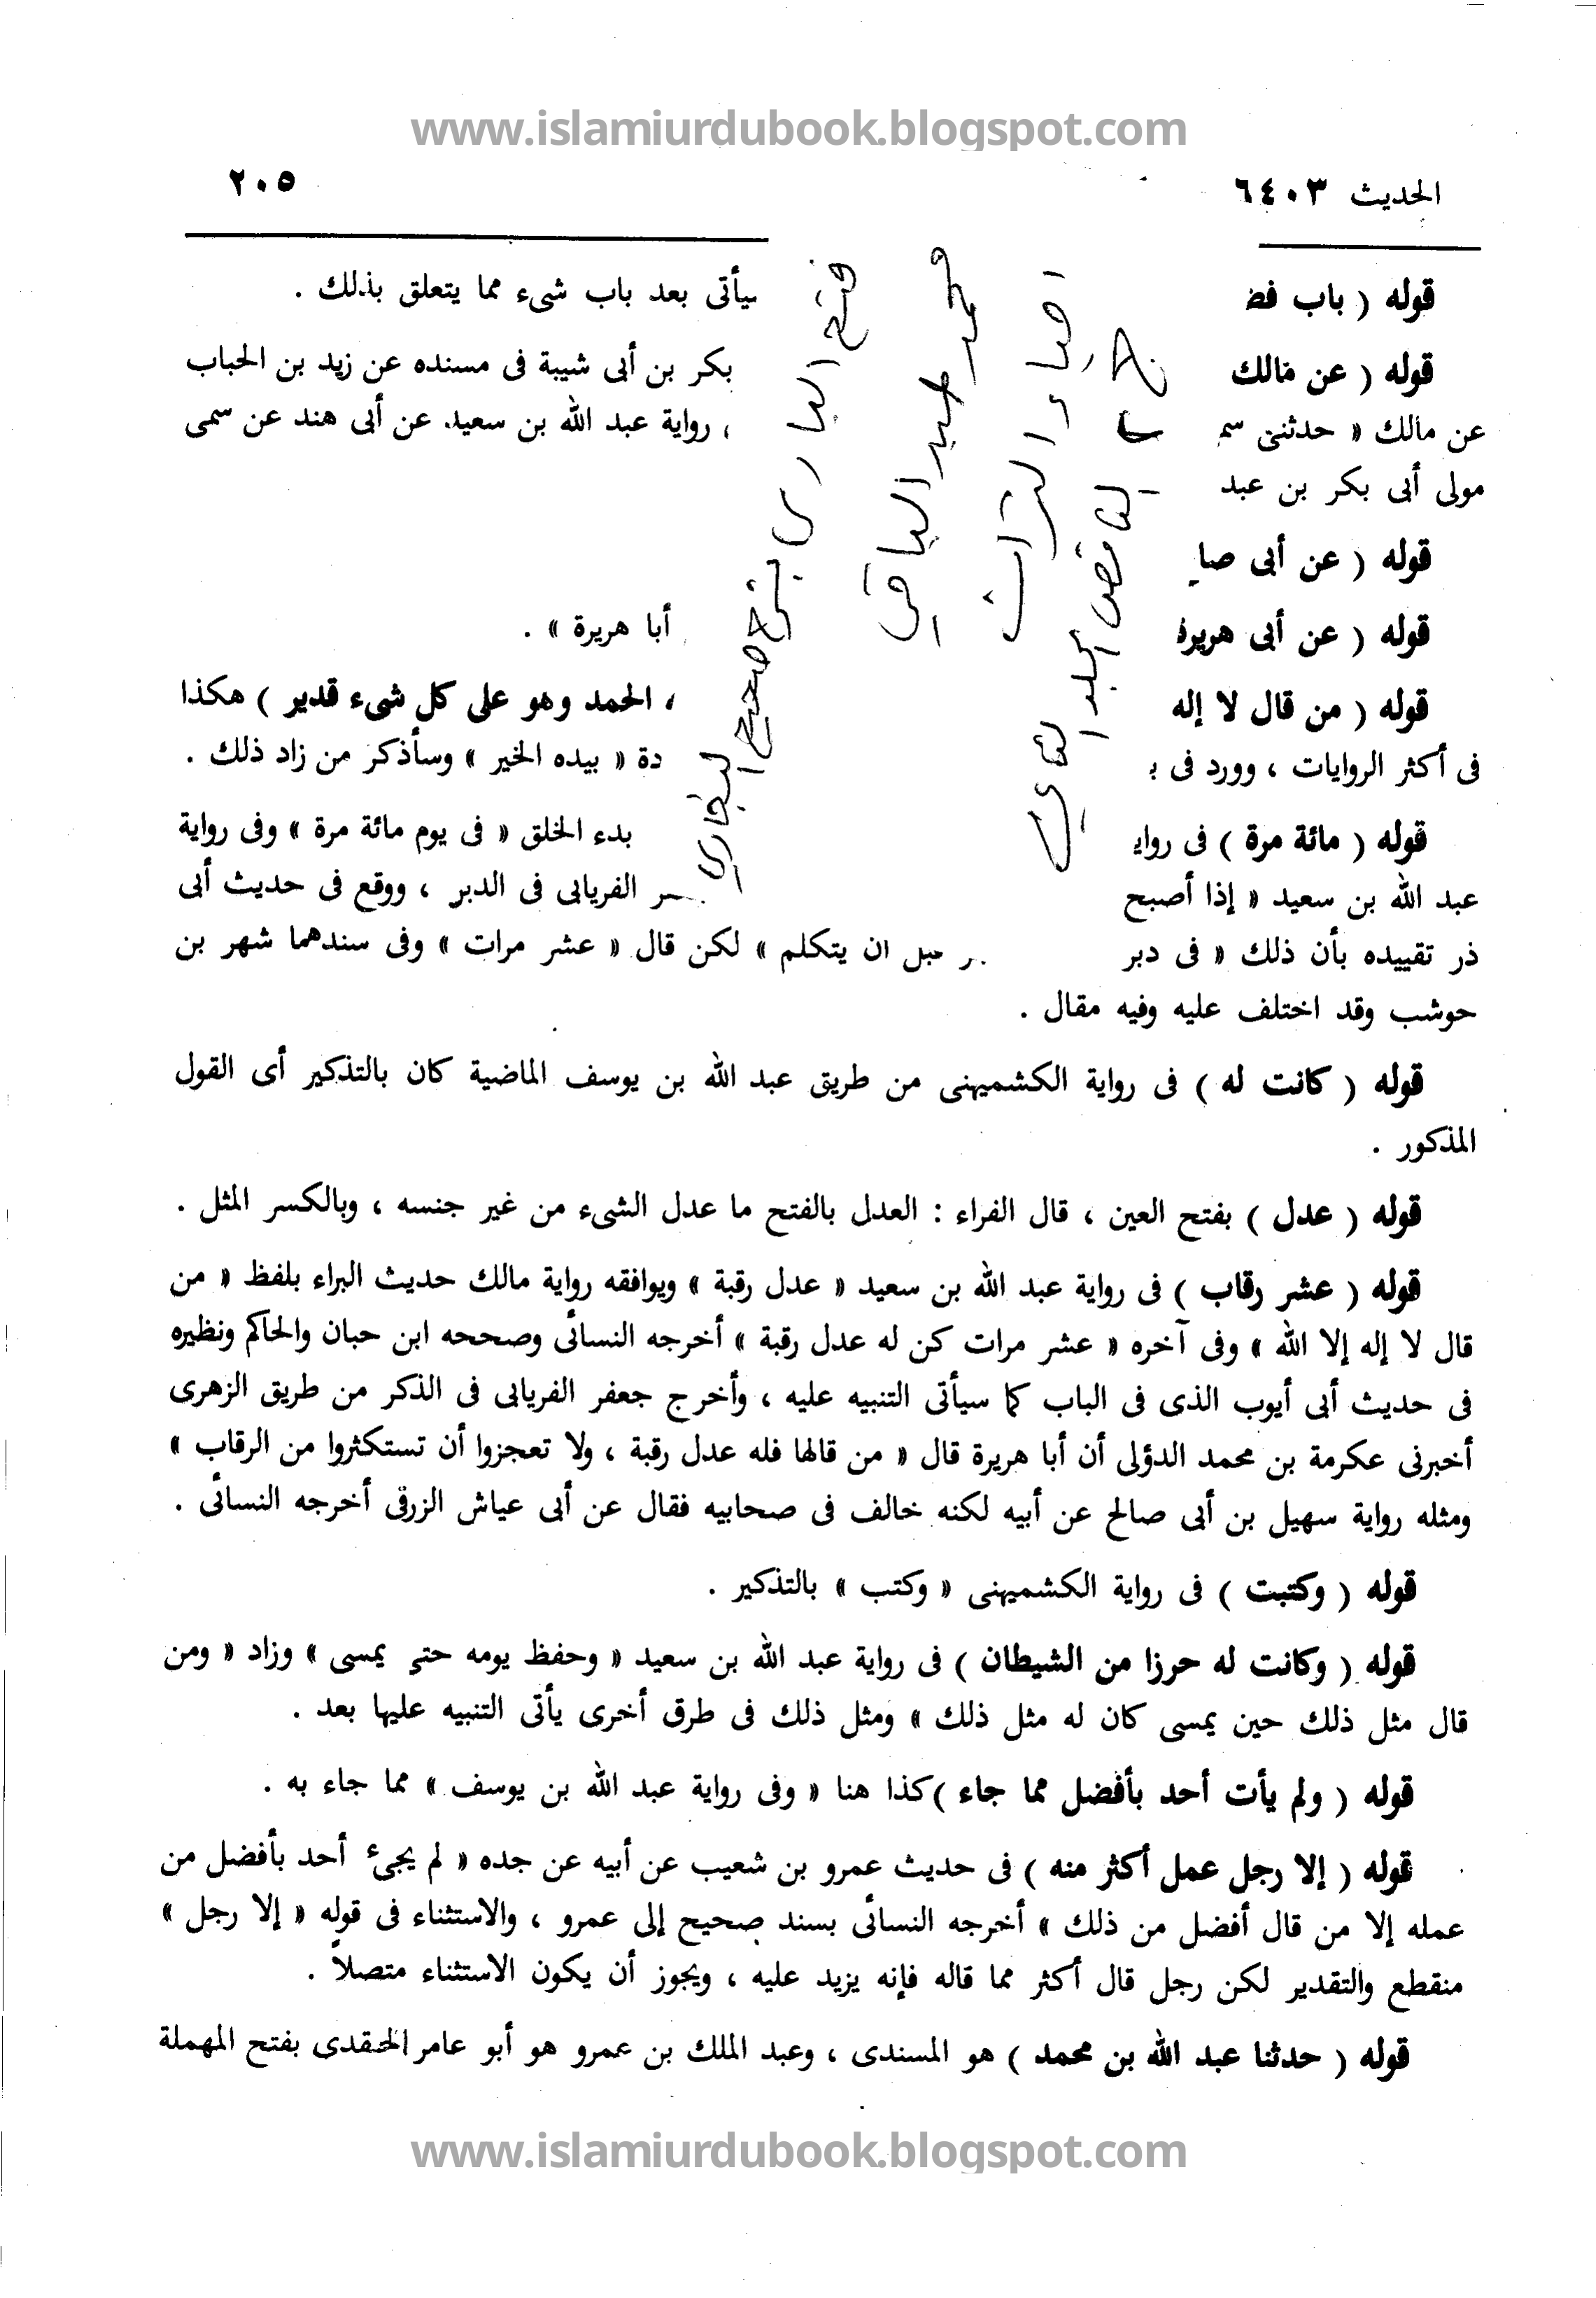 www.islamiurdubook.blogspot.com
الحديث ٦٤٠٣ ٢٠٥
قوله ( باب فضـ سيأتى بعد باب شىء مما يتعلق بذلك .
قوله ( عن مالك بكر بن أبى شيبة فى مسنده عن زيد بن الحباب
عن مالك « حدثنى سمـ ، رواية عبد الله بن سعيد عن أبى هند عن سمى
مولى أبى بكر بن عبد
قوله ( عن أبى صا
قوله ( عن أبى هريرة أبا هريرة » .
قوله ( من قال لا إله ، الحمد وهو على كل شىء قدير ) هكذا
فى أكثر الروايات ، وورد فى بـ دة « بيده الخير » وسأذكر من زاد ذلك .
قوله ( مائة مرة ) فى روايـ بدء الخلق « فى يوم مائة مرة » وفى رواية
عبد الله بن سعيد « إذا أصبح ـر الفريابى فى الدبر ، ووقع فى حديث أبى
ذر تقييده بأن ذلك « فى دبر ـر قبل ان يتكلم » لكن قال « عشر مرات » وفى سندهما شهر بن
حوشب وقد اختلف عليه وفيه مقال .
فتح البارى بشرح صحيح البخارى
محمد عبد الباقى
احياء التراث
الناقص المجلد الثانى
قوله ( كانت له ) فى رواية الكشميهنى من طريق عبد الله بن يوسف الماضية كان بالتذكير أى القول
المذكور .
قوله ( عدل ) بفتح العين ، قال الفراء : العدل بالفتح ما عدل الشىء من غير جنسه ، وبالكسر المثل .
قوله ( عشر رقاب ) فى رواية عبد الله بن سعيد « عدل رقبة » ويوافقه رواية مالك حديث البراء بلفظ « من
قال لا إله إلا الله » وفى آخره « عشر مرات كن له عدل رقبة » أخرجه النسائى وصححه ابن حبان والحاكم ونظيره
فى حديث أبى أيوب الذى فى الباب كما سيأتى التنبيه عليه ، وأخرج جعفر الفريابى فى الذكر من طريق الزهرى
أخبرنى عكرمة بن محمد الدؤلى أن أبا هريرة قال « من قالها فله عدل رقبة ، ولا تعجزوا أن تستكثروا من الرقاب »
ومثله رواية سهيل بن أبى صالح عن أبيه لكنه خالف فى صحابيه فقال عن أبى عياش الزرقى أخرجه النسائى .
قوله ( وكتبت ) فى رواية الكشميهنى « وكتب » بالتذكير .
قوله ( وكانت له حرزا من الشيطان ) فى رواية عبد الله بن سعيد « وحفظ يومه حتى يمسى » وزاد « ومن
قال مثل ذلك حين يمسى كان له مثل ذلك » ومثل ذلك فى طرق أخرى يأتى التنبيه عليها بعد .
قوله ( ولم يأت أحد بأفضل مما جاء ) كذا هنا « وفى رواية عبد الله بن يوسف » مما جاء به .
قوله ( إلا رجل عمل أكثر منه ) فى حديث عمرو بن شعيب عن أبيه عن جده « لم يجىء أحد بأفضل من
عمله إلا من قال أفضل من ذلك » أخرجه النسائى بسند صحيح إلى عمرو ، والاستثناء فى قوله « إلا رجل »
منقطع والتقدير لكن رجل قال أكثر مما قاله فإنه يزيد عليه ، ويجوز أن يكون الاستثناء متصلاً .
قوله ( حدثنا عبد الله بن محمد ) هو المسندى ، وعبد الملك بن عمرو هو أبو عامر العقدى بفتح المهملة
www.islamiurdubook.blogspot.com